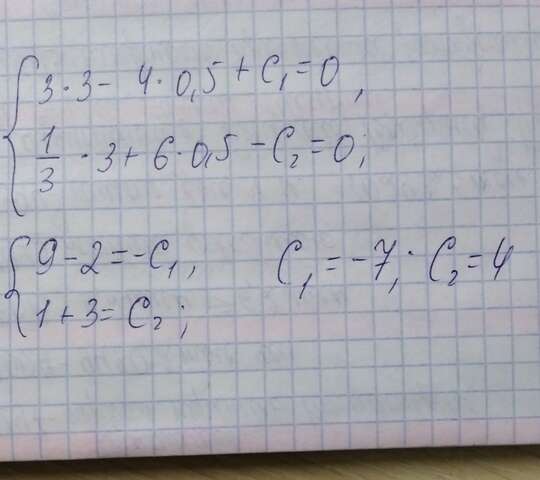 3·3 - 4·0,5 + C₁ = 0,
1/3 · 3 + 6·0,5 - C₂ = 0;
9 - 2 = -C₁,
1 + 3 = C₂;
C₁ = -7; C₂ = 4